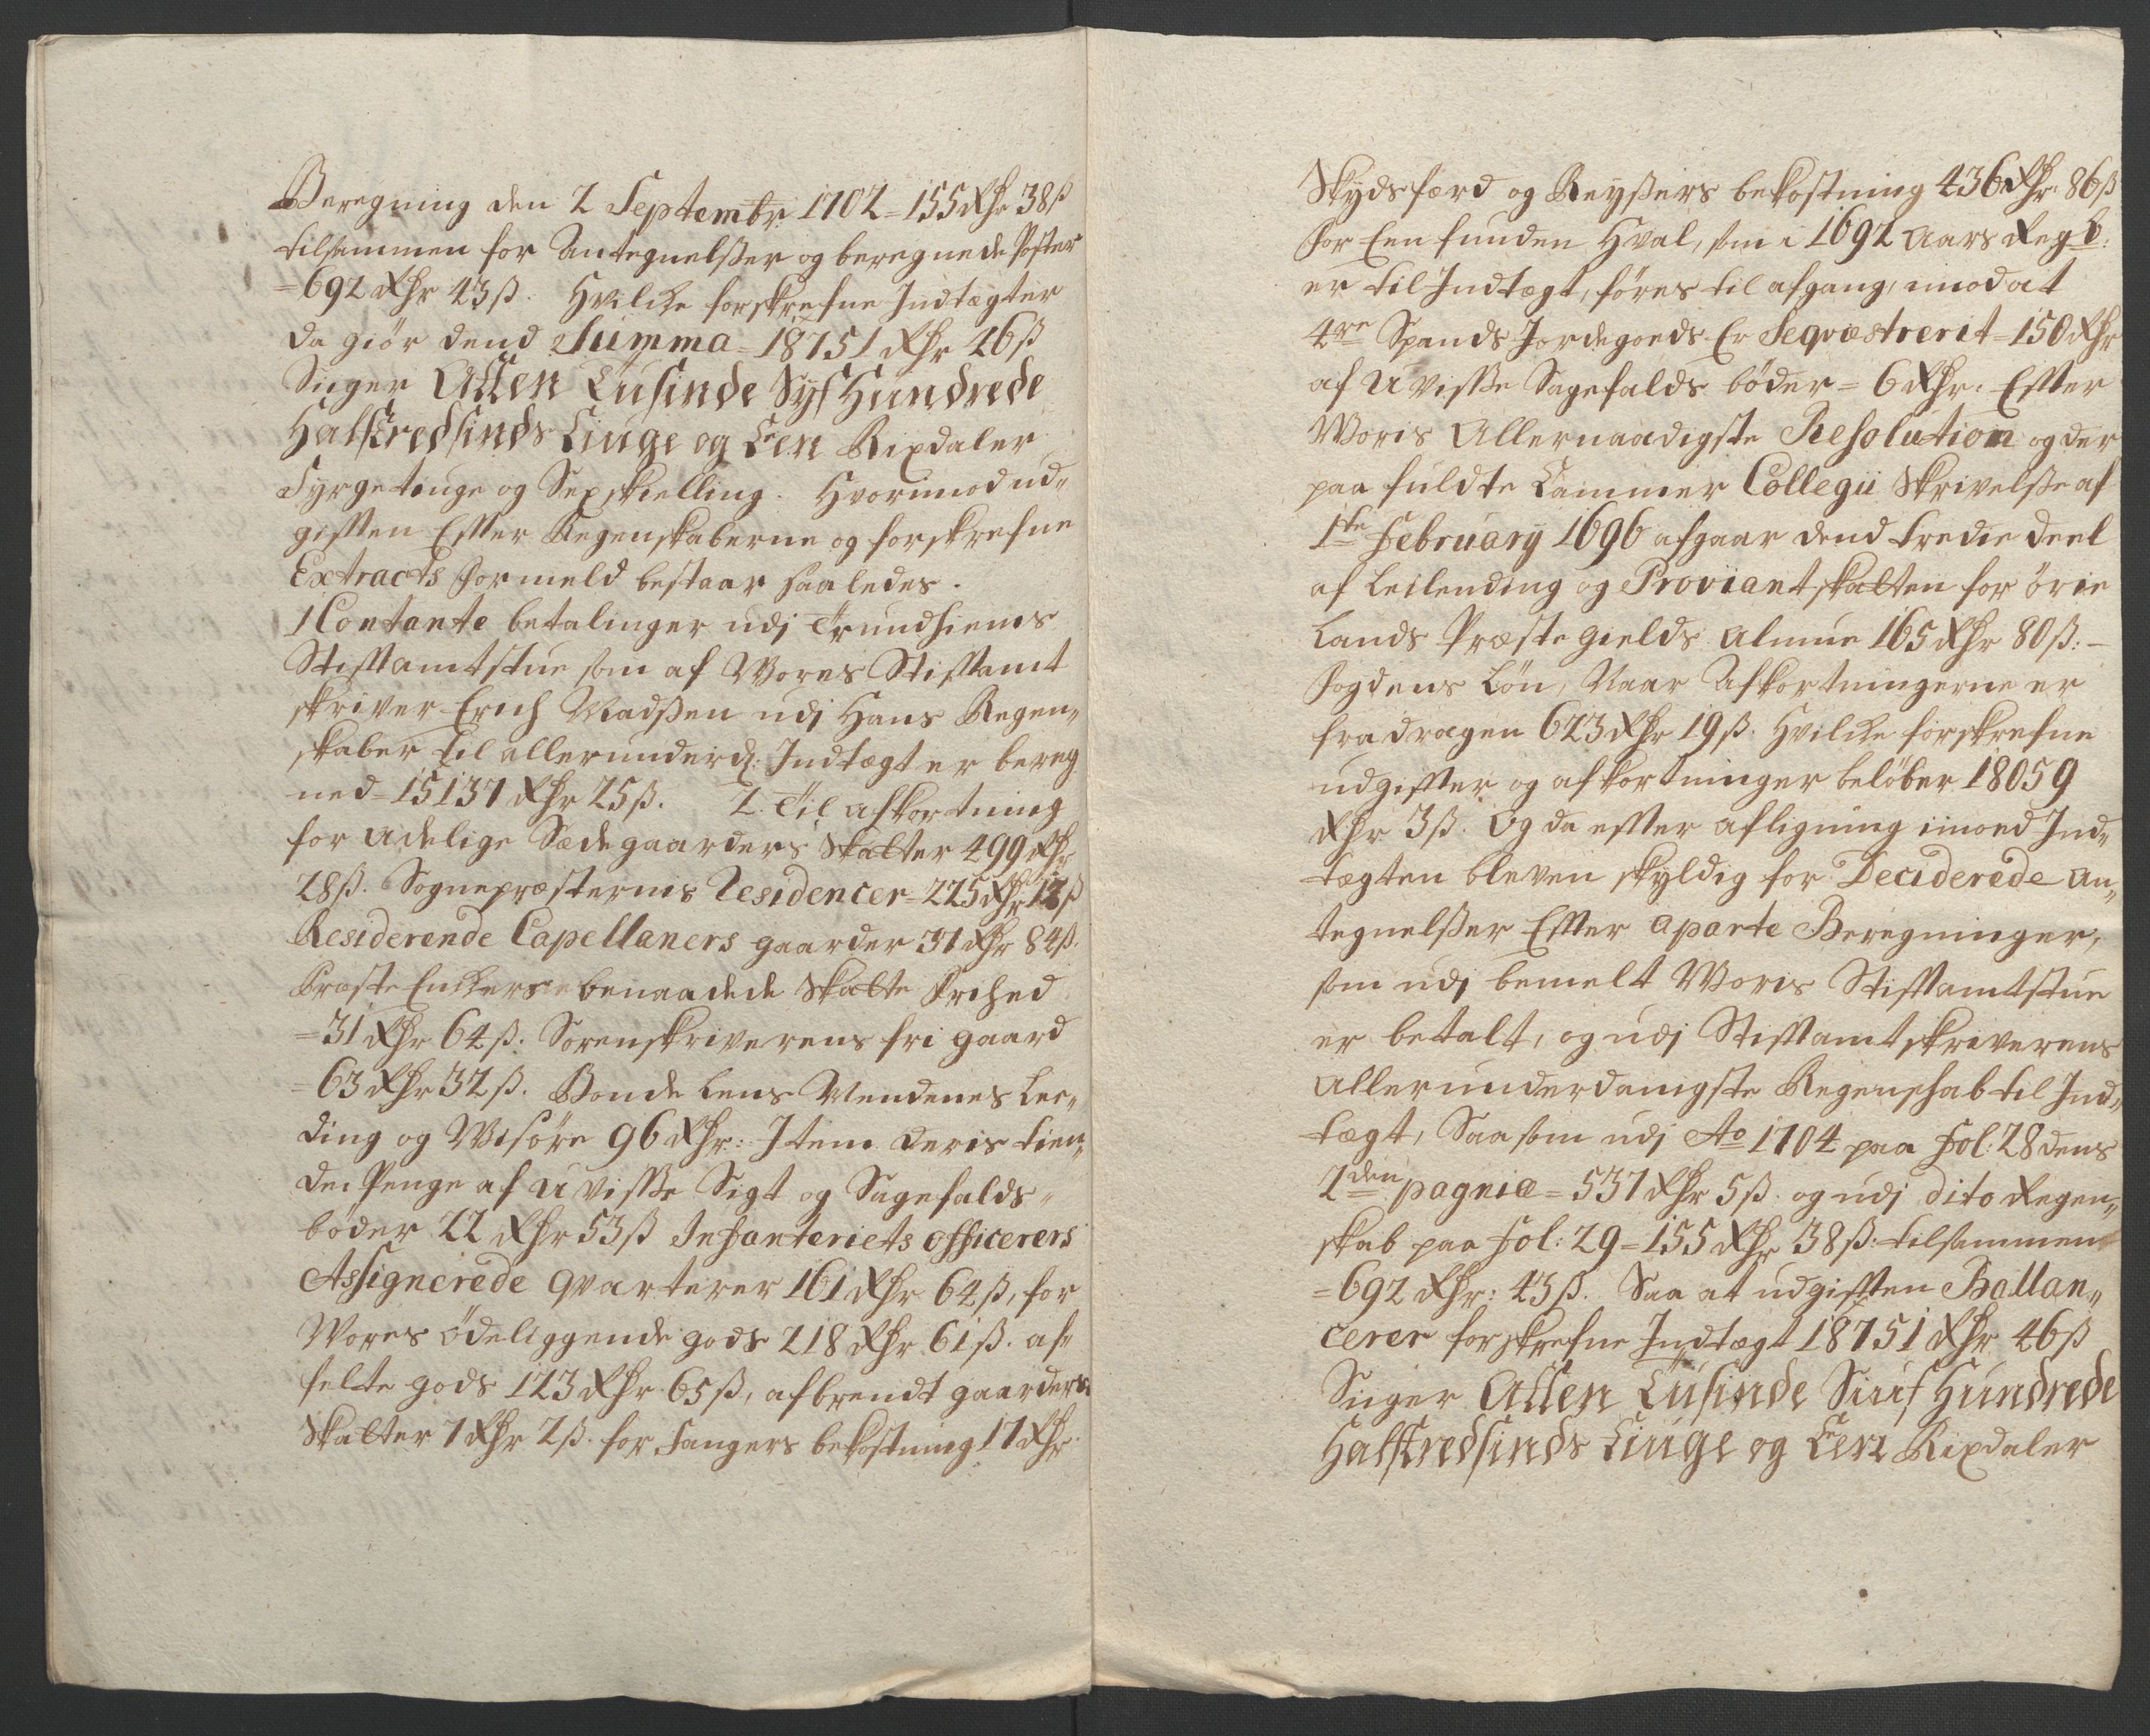 Beregning den 2 Septembr: 1702 = 155 Rhr 38 ß
tilsammen for Antegnelßer og beregnede Poster
= 692 Rhr 43 ß. Hvilcke forskrefne Indtægter
da giör dend Summa = 18751 Rhr 46 ß
Siger Atten Tusinde Syf Hundrede
Halftredsinds Tiuge og Een Rixdaler
Fyrgetiuge og Sex skielling. Hvorimod ud„
giften Efter Regenskaberne og forskrefne
Extracts Formeld bestaar saaledes.
1 Contante betalinger udj Trundhiems
Stiftamtstue som af Vores Stiftamt
skriver Erich Madßen udj Hans Regen„
skaber til allerunderd: Indtægt er bereg
ned = 15137 Rhr 25 ß. 2. Til afkortning
for Adelige Sædegaarders Skatter 499 Rhr
28 ß. Sognepræsternis Residencer = 225 Rhr 12 ß
Residerende Capellaners gaarder 31 Rhr 84 ß.
Præste Enckers benaadede Skatte Frihed
= 31 Rhr 64 ß. Sorenskriverens fri gaard
= 63 Rhr 32 ß. Bonde Lens Mendenes Lee„
ding og Visöre 96 Rhr: Item deris tien„
de Penge af Uvisße Sigt og Sagefalds„
böder 22 Rhr 53 ß Infanteriets Officerers
Assignerede Qvarterer 161 Rhr 64 ß, for
Vores ödeliggende gods 218 Rhr 61 ß. af„
felte gods 123 Rhr 65 ß, afbrendt gaarders
Skatter 7 Rhr 2 ß. for Fangers bekostning 17 Rhr.
Skydsferd og Reyßers bekostning 436 Rhr. 86 ß
for Een funden Hval, som i 1692 Aars Regb:
er til Indtægt, föres til afgang, imod at
4re Spands Jordegoeds Er Seqvæstrerit = 150 Rhr
af Uvisße Sagefalds böder = 6 Rhr. Efter
Voris Allernaadigste Resolution og der
paa fuldte Cammer Collegii Skrivelße af
1te February 1696 afgaar dend tredie deel
af Leilending og Proviantskatten for örie
Lands Præste gields Almue 165 Rhr 80 ß: –
Fogdens Lön, Naar Afkortningerne er
fradragen 623 Rhr 19 ß. Hvilcke forskrefne
udgifter og afkortninger belöber 18059
Rhr 3 ß. Og da efter afligning imoed Ind„
tægten bleven skyldig for Deciderede An„
tegnelßer Efter aparte Beregninger,
som udj bemelt Voris Stiftamtstue
er betalt, og udj Stiftamtskriverens
Allerunderdanigste Regenskab til Ind„
tægt, Saasom udj Ao 1704 paa Fol: 28 dens
2den pagnia = 537 Rhr 5 ß. og udj dito Regen„
skab paa Fol: 29 = 155 Rhr 38 ß: tilsammen
= 692 Rhr: 43 ß. Saa at udgiften Ballan„
cerer forskrefne Indtægt 18751 Rhr 46 ß
Siger Atten Tusinde Siuf Hundrede
Halftredsinds Tiuge og Een Rixdaler